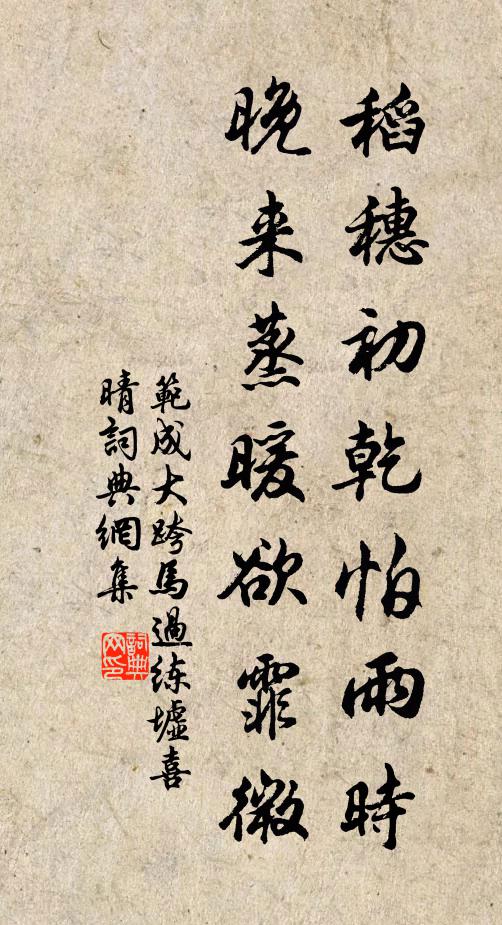 稻穗初乾怕雨時
晚来蒸暖欲霏微
範成大跨馬過练墟喜
晴詞典網集
詞典网印